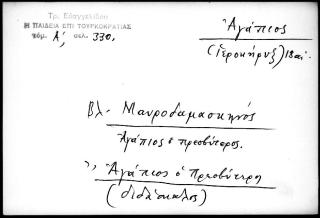 Τρ. Εὐαγγελίδου
Η ΠΑΙΔΕΙΑ ΕΠΙ ΤΟΥΡΚΟΚΡΑΤΙΑΣ
τόμ. Α', σελ. 330.
Ἀγάπιος
(ἱεροκήρυξ) 18 αἰ.
Βλ. Μαυροδαμασκηνός
Ἀγάπιος ὁ πρεσβύτερος.
" Ἀγάπιος ὁ Πρεσβύτερος
(διδάσκαλος)